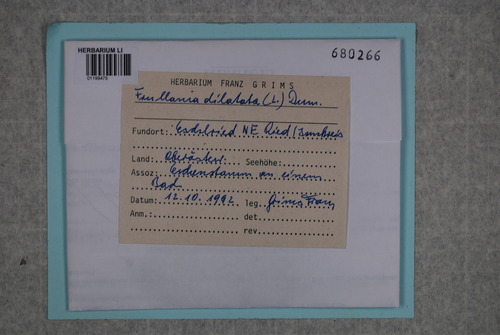 HERBARIUM LI
01199479
680266
HERBARIUM FRANZ GRIMS
Frullania dilatata (L.) Dum.
Fundort: NE Ried/Innkreis
Land: Oberösterr. Seehöhe:
Assoz: Eschenstamm an einem
Bach
Datum: 12.10.1992 leg. Grims Franz
Anm.: det.
rev.